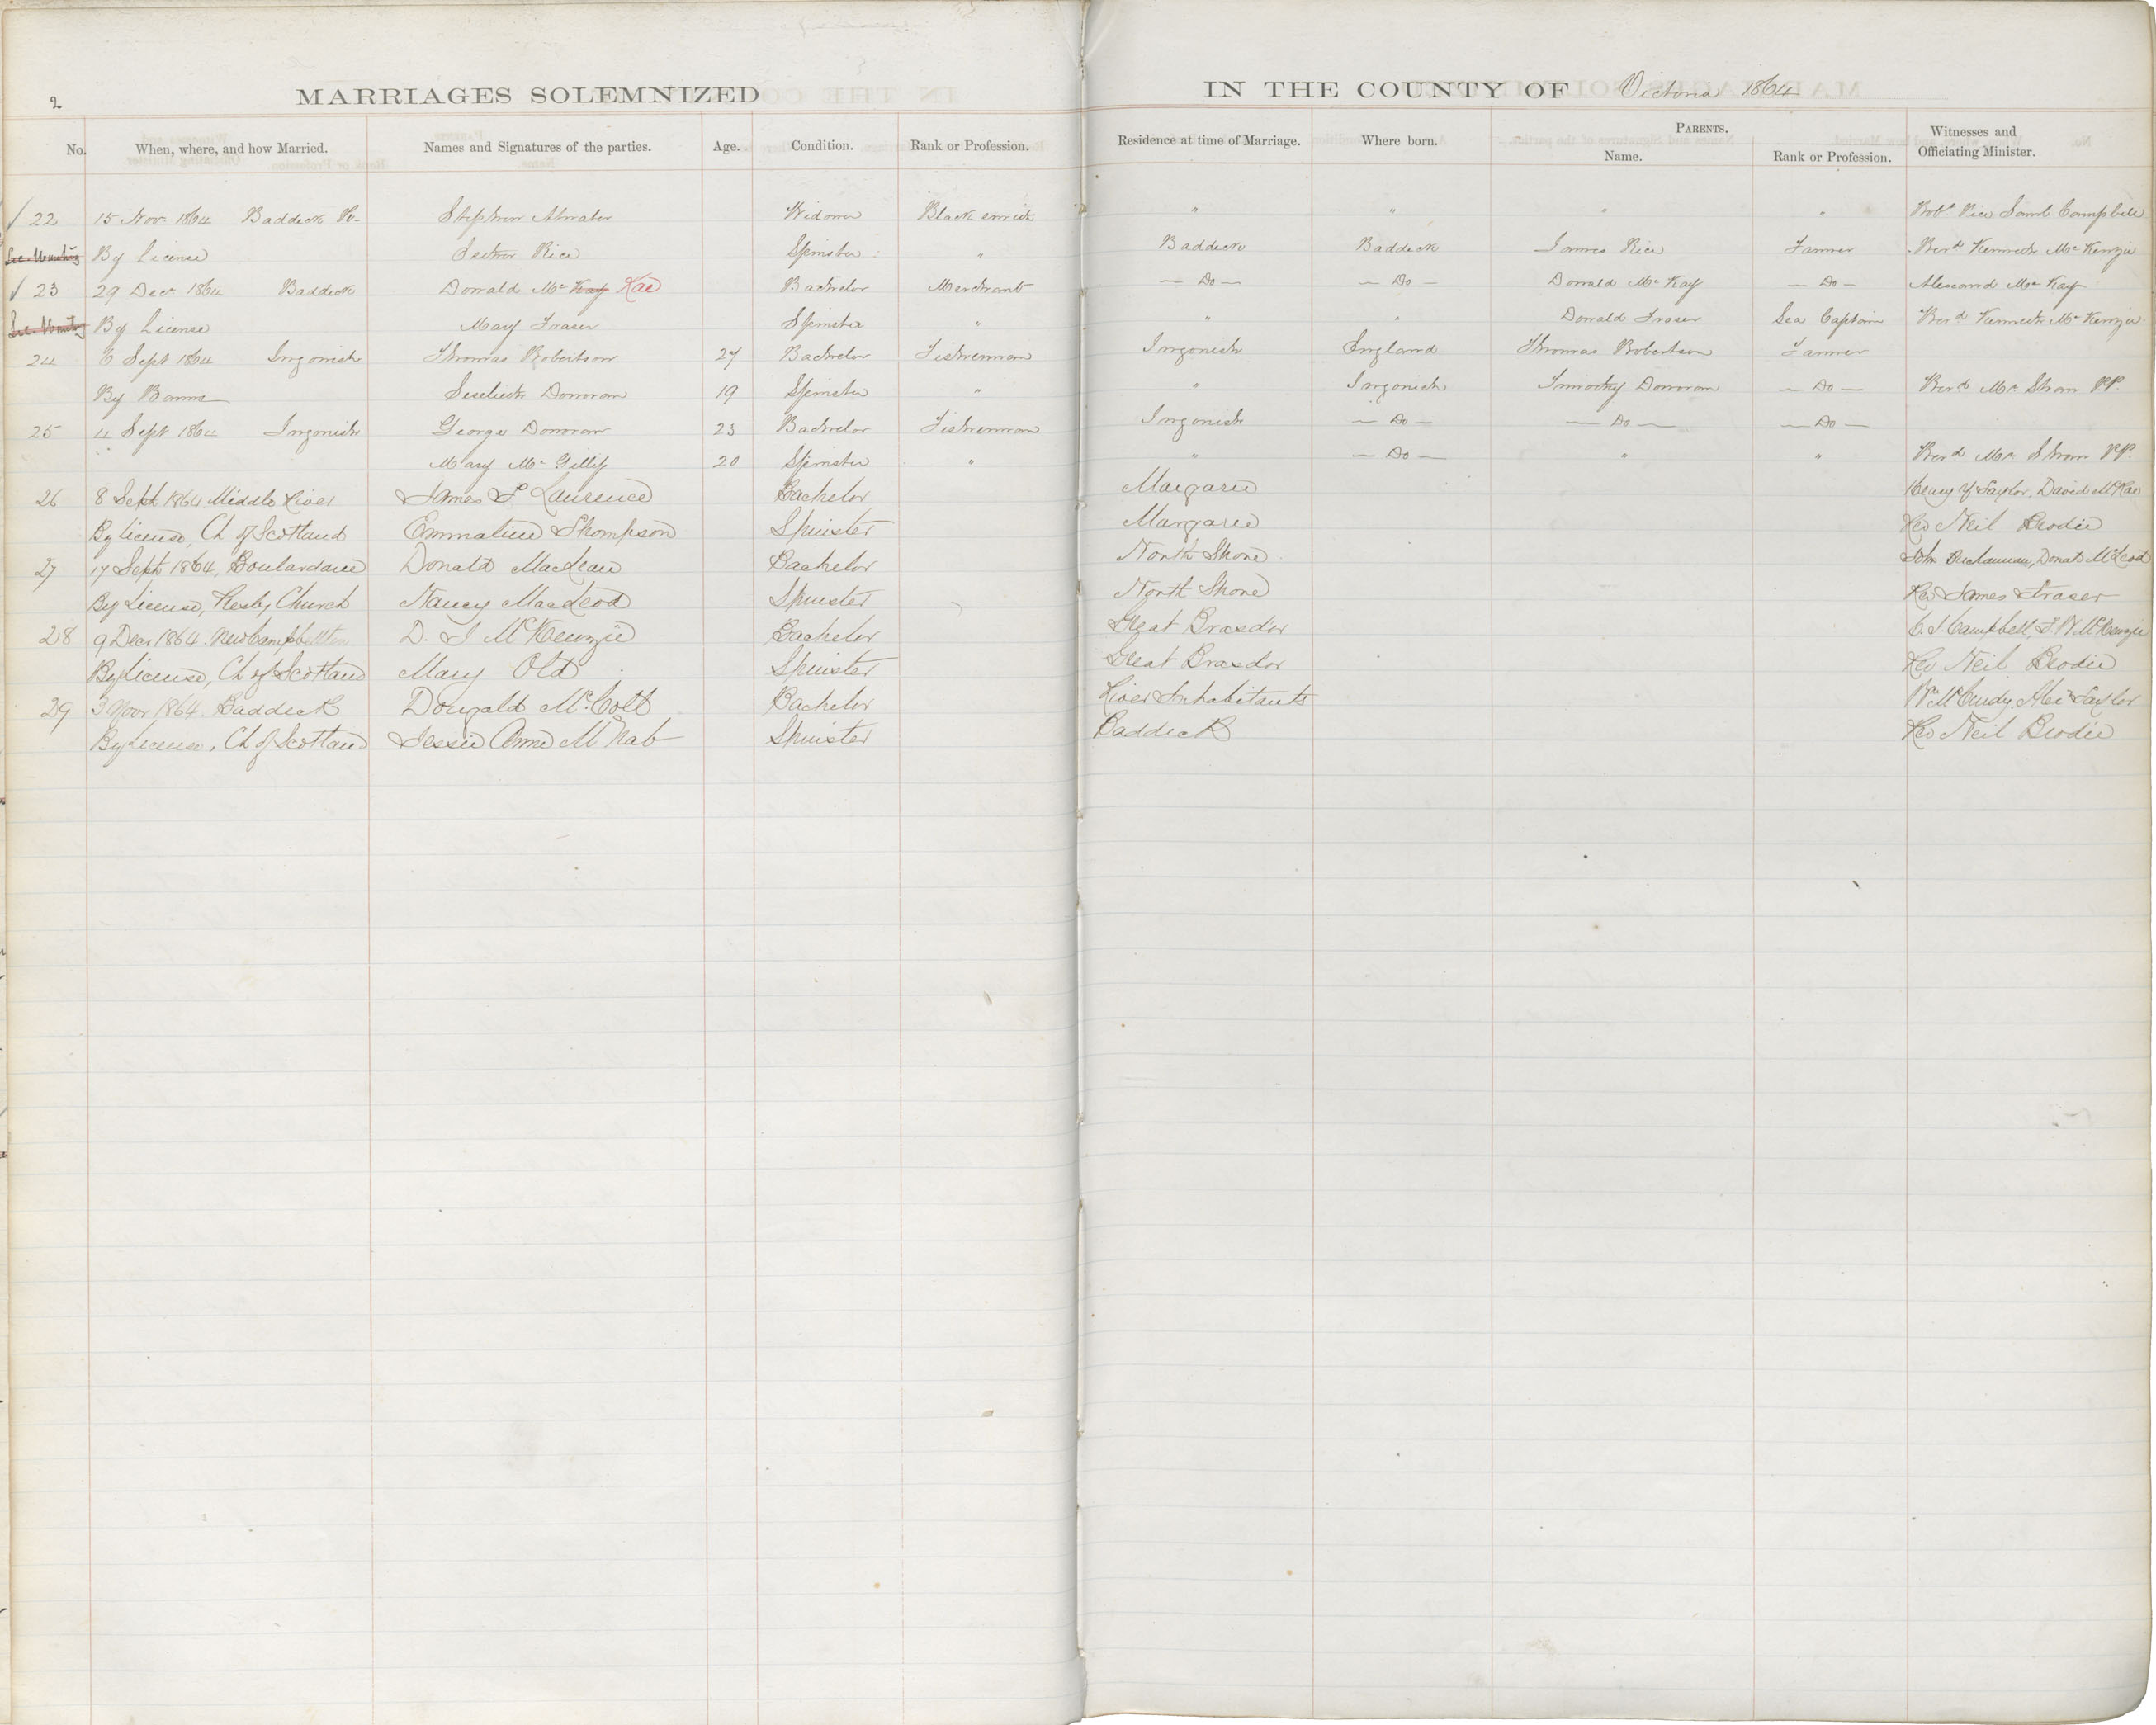 2
MARRIAGES SOLEMNIZED IN THE COUNTY OF Victoria 1864
No. When, where, and how Married. Names and Signatures of the parties. Age. Condition. Rank or Profession. Residence at time of Marriage. Where born. PARENTS. Name. Rank or Profession. Witnesses and Officiating Minister.
22 15 Nov 1864 Baddeck Stephen Widower Black smith " " " " Robt Rice Saml Campbell
By License Rice Spinster " Baddeck Baddeck James Rice Farmer Revd Kenneth McKenzie
23 29 Decr 1864 Baddeck Donald Mc Kay Rae Bachelor Merchant — Do — — Do — Donald McKay — Do — McKay
By License Mary Fraser Spinster " " " Donald Fraser Sea Captain Revd Kenneth McKenzie
24 6 Sept 1864 Ingonish Thomas Robertson 27 Bachelor Fisherman Ingonish England Thomas Robertson Farmer
By Banns Donovan 19 Spinster " " Ingonish Timothy Donovan — Do — Revd Mr Shaw PP.
25 4 Sept 1864 Ingonish George Donovan 23 Bachelor Fisherman Ingonish — Do — — Do — — Do —
" Mary McGillis 20 Spinster " " — Do — " " Revd Mr Shaw PP.
26 8 Sept 1864, Middle River James Laurence Bachelor Margaree Henry Taylor, David McRae
By License, Ch of Scotland Emmaline Thompson Spinster Margaree Rev Neil Brodie
27 17 Sept 1864, Boulardarie Donald MacLean Bachelor North Shore John Buchannan, Donald McLeod
By License, Presby Church Nancy MacLeod Spinster North Shore Rev James Fraser
28 9 Decr 1864. New Campbellton D. J McKenzie Bachelor Great Brasdor C J Campbell, J. W. McKenzie
By License, Ch of Scotland Mary Old Spinster Great Brasdor Rev Neil Brodie
29 3 Novr 1864. Baddeck Dougald McColl Bachelor River Inhabitants Wm McCurdy, Alex Taylor
By License, Ch of Scotland Jessie Anne McNab Spinster Baddeck Rev Neil Brodie